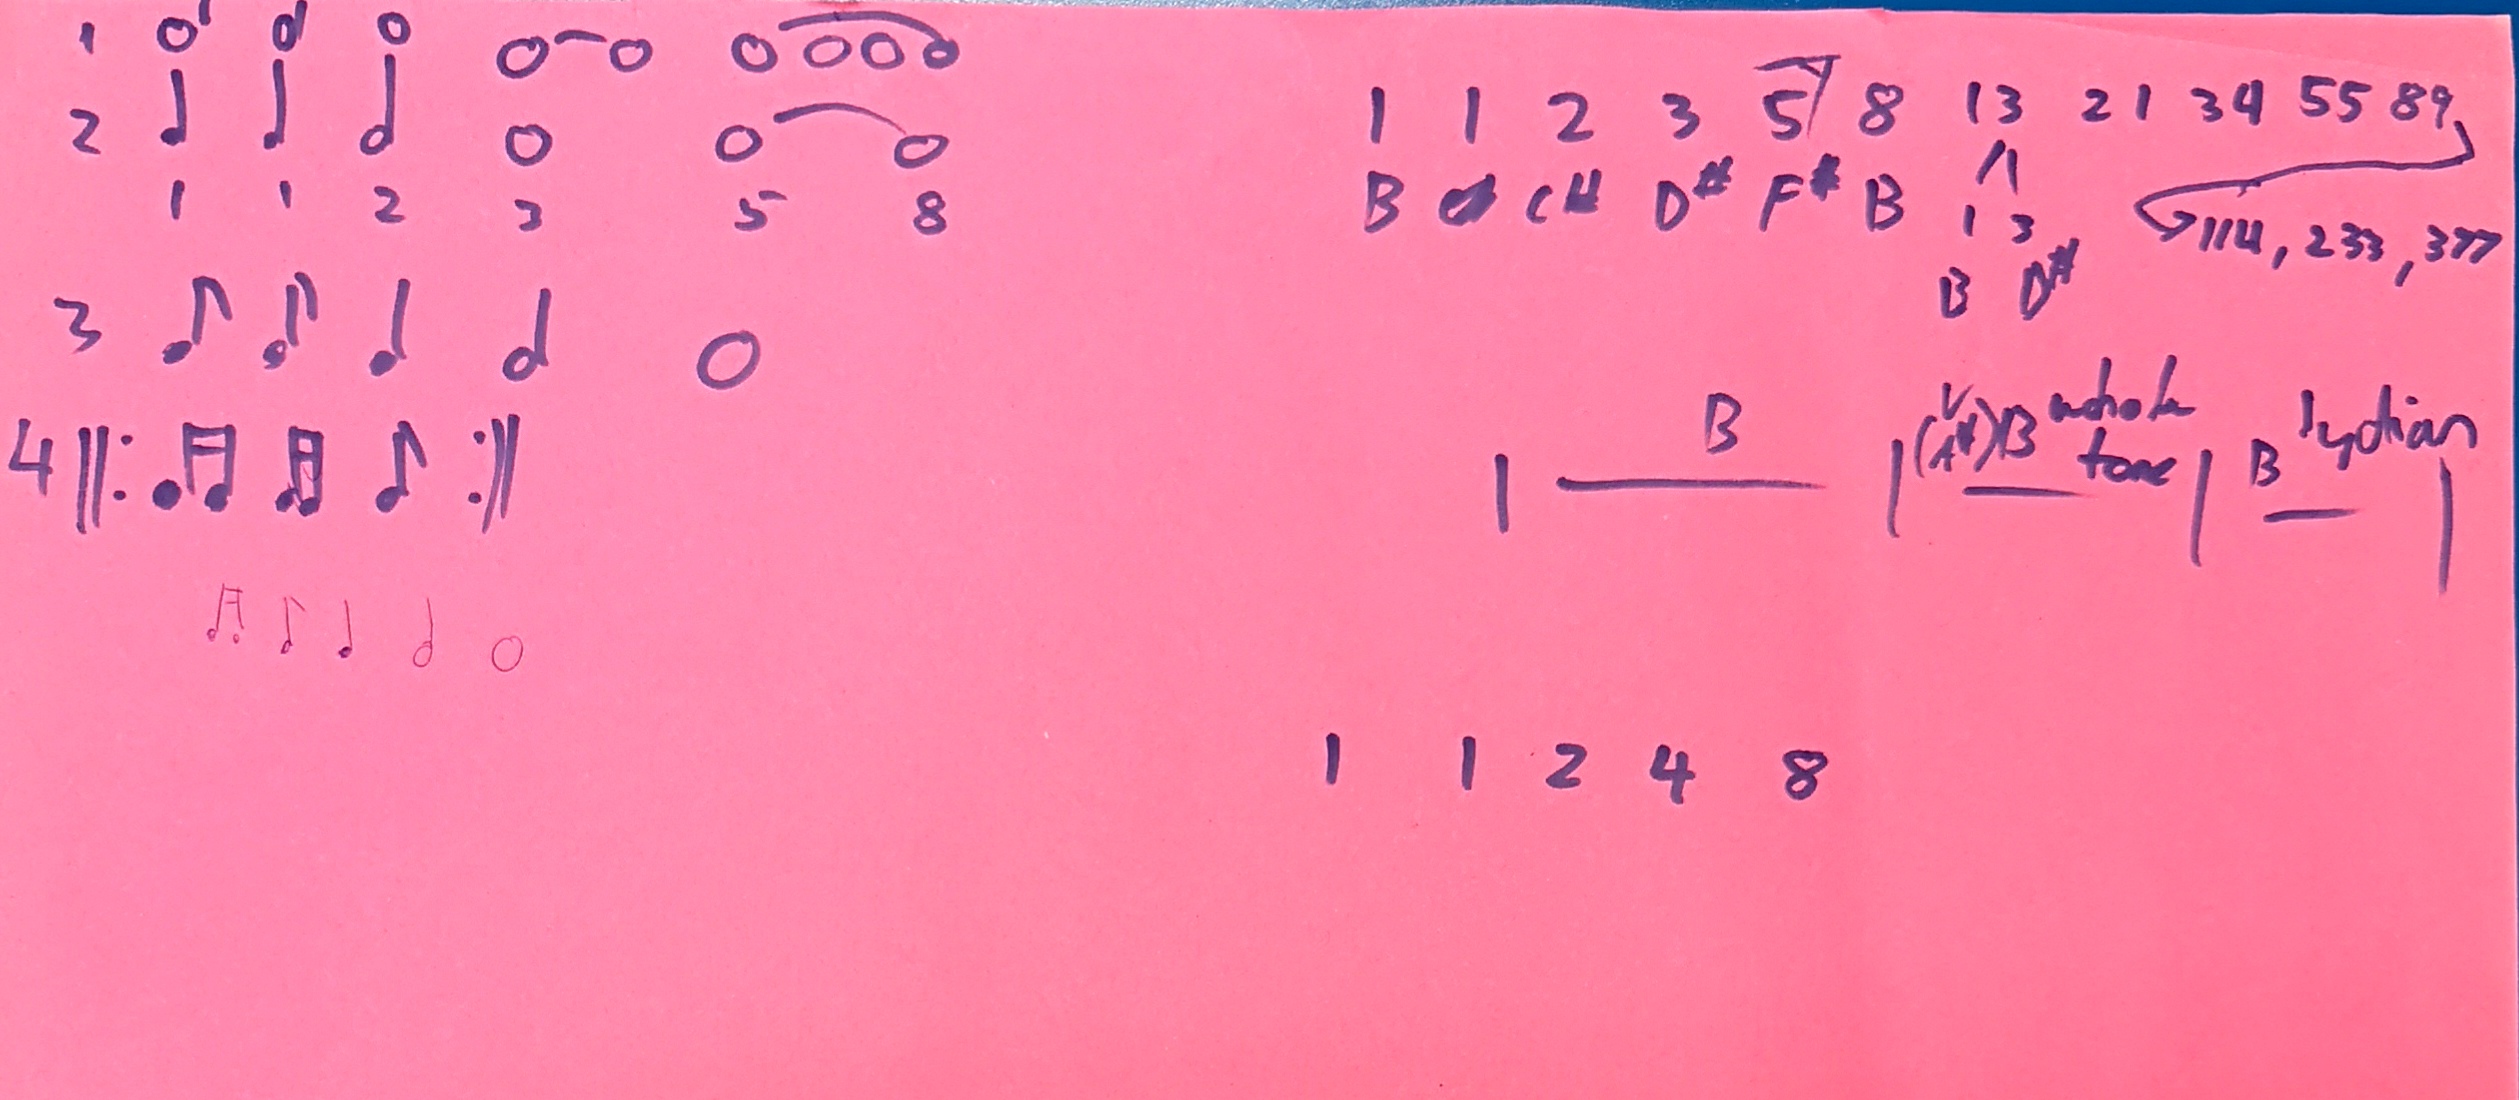 1
2
1 1 2 3 5 8
3
4
1 1 2 3 5 8 13 21 34 55 89
B C# D# F# B 1 3 114, 233, 377
B D#
B (A#) B whole tone B lydian
1 1 2 4 8